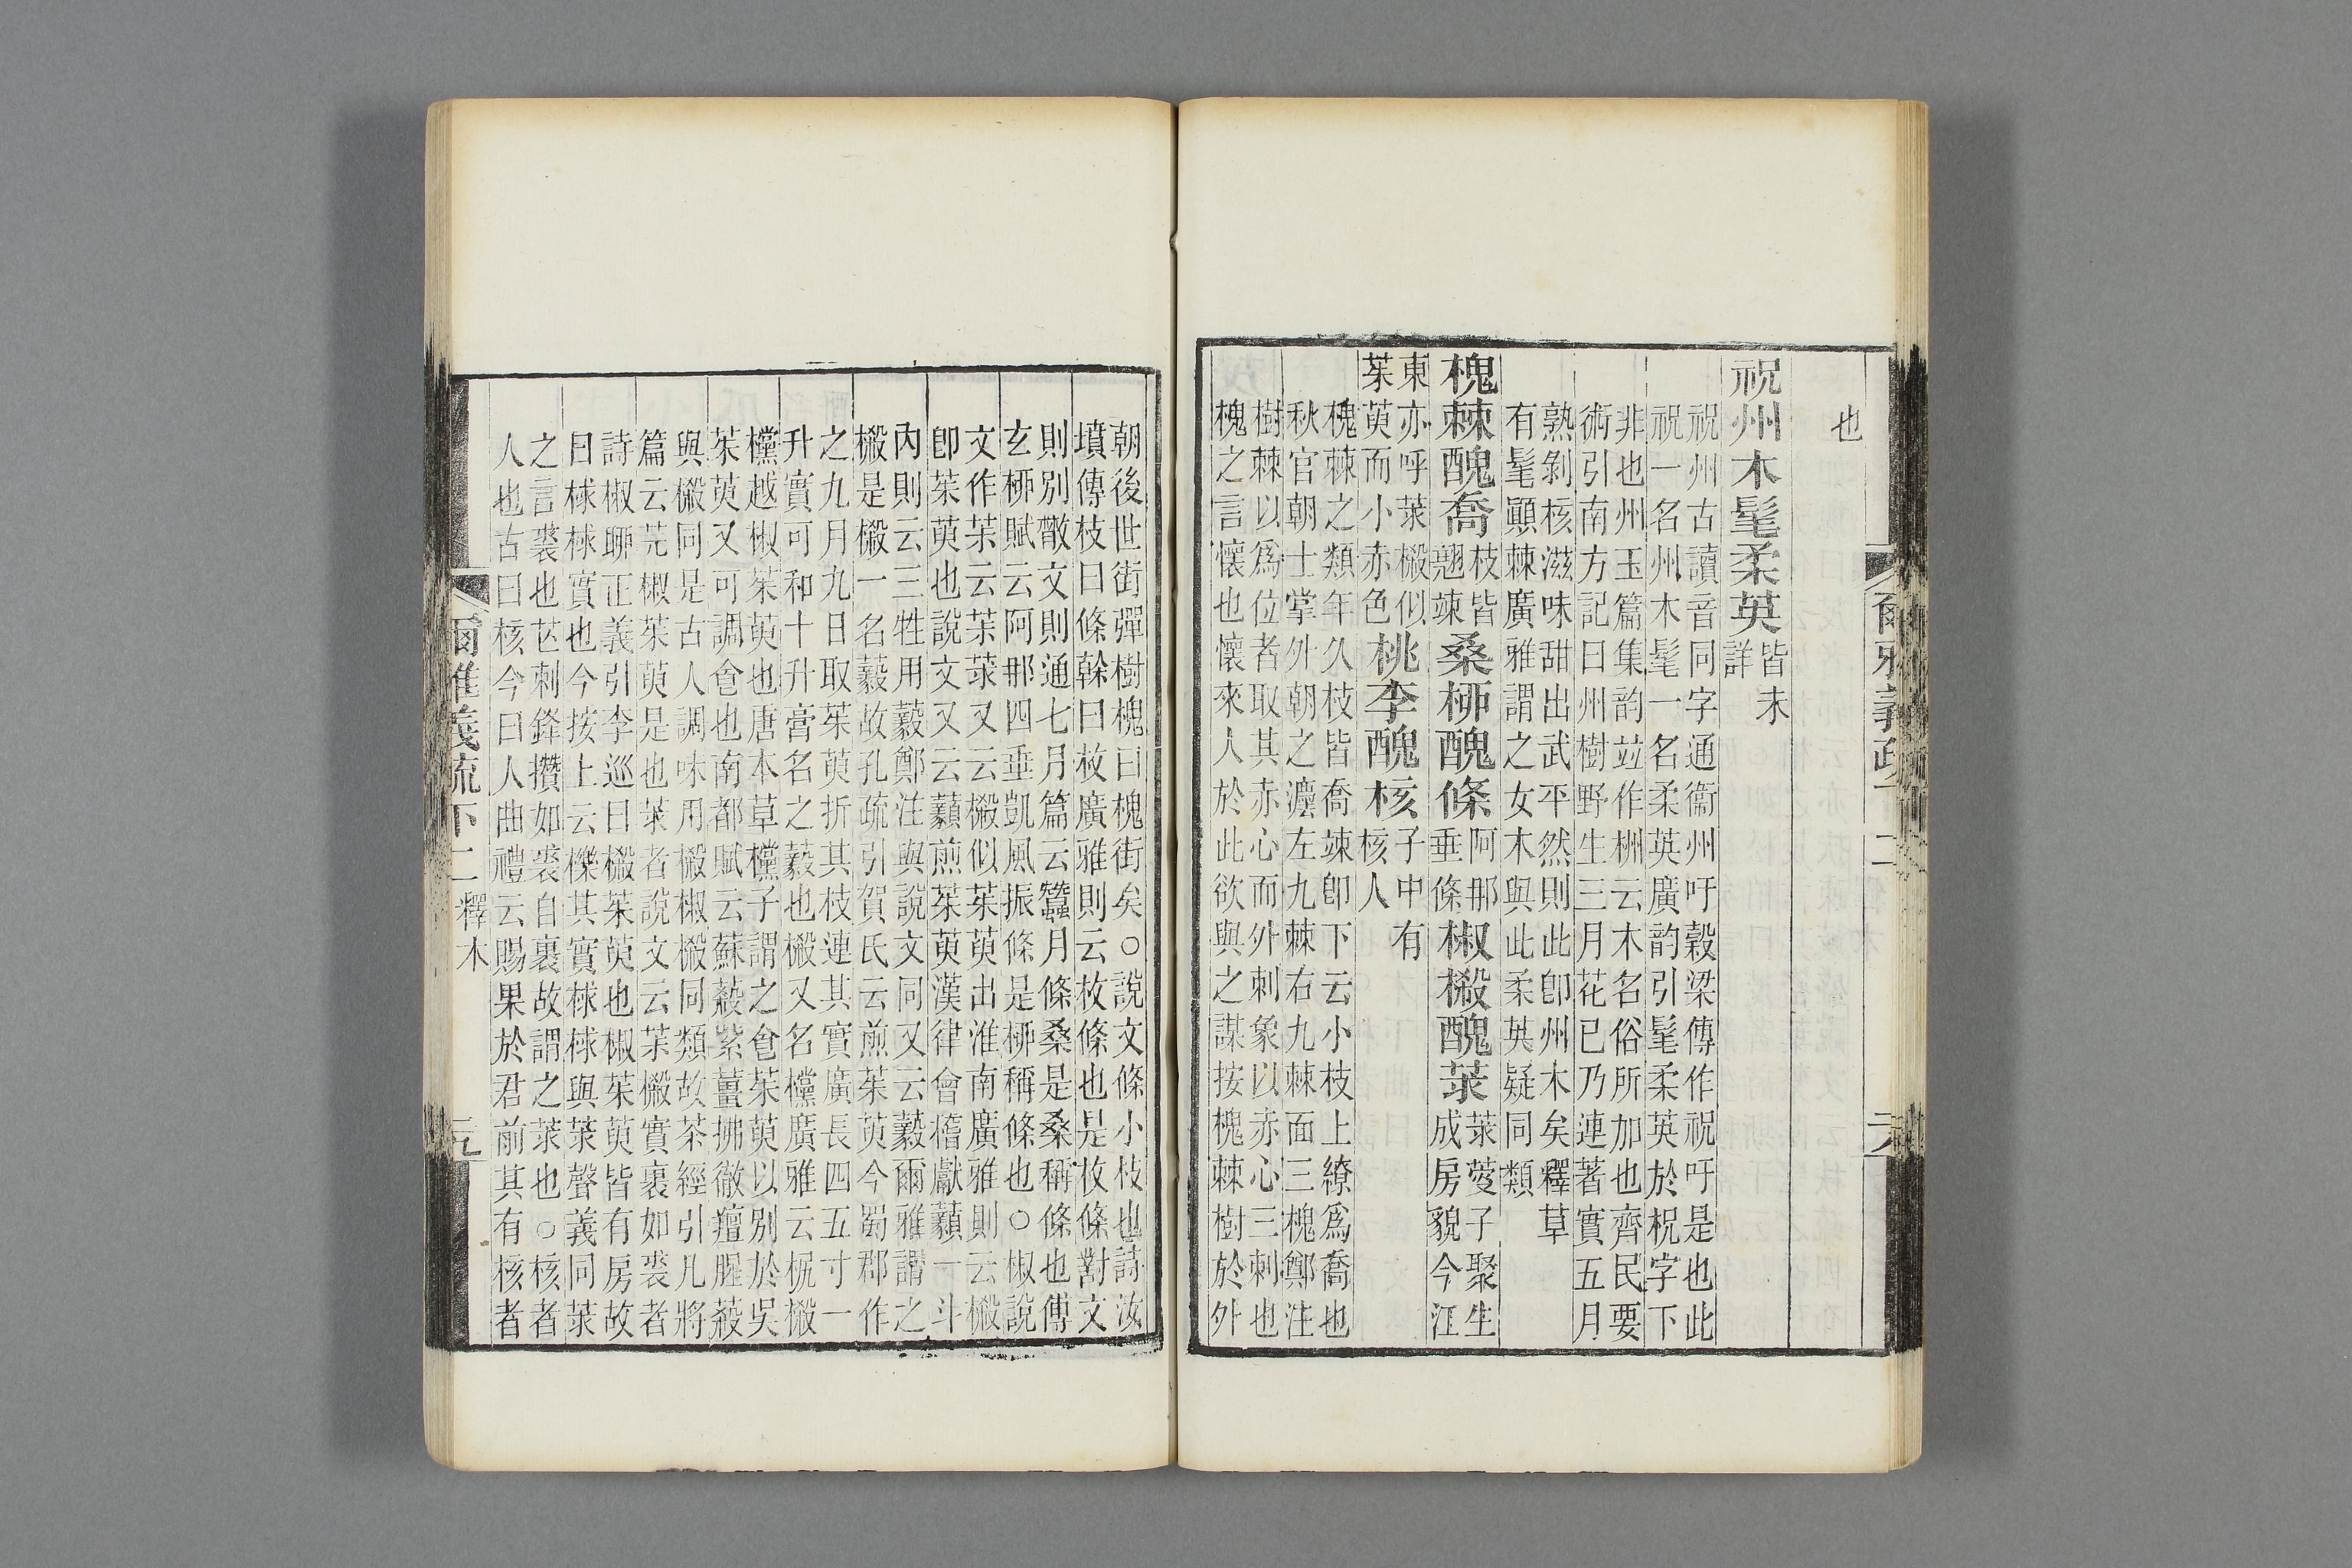 也
祝州木髦柔英皆未詳
祝州古讀音同字通衞州吁穀梁傳作祝吁是也此
祝一名州木髦一名柔英廣韵引髦柔英於柷字下
非也州玉篇集韵竝作栦云木名俗所加也齊民要
術引南方記曰州樹野生三月花已乃連著實五月
熟剝核滋味甜出武平然則此卽州木矣釋草
有髦顚棘廣雅謂之女木與此柔英疑同類
槐棘醜喬枝皆翹竦桑柳醜條阿那垂條椒樧醜莍莍蓃子聚生成房貌今江
東亦呼莍樧似茱萸而小赤色桃李醜核子中有核人
槐棘之類年久枝皆喬竦卽下云小枝上繚爲喬也
秋官朝士掌外朝之灋左九棘右九棘面三槐鄭注
樹棘以爲位者取其赤心而外刺象以赤心三刺也
槐之言懷也懷來人於此欲與之謀按槐棘樹於外
朝後世街彈樹槐曰槐街矣○說文條小枝也詩汝
墳傳枝曰條榦曰枚廣雅則云枚條也是枚條對文
則別散文則通七月篇云蠶月條桑是桑稱條也傅
玄柳賦云阿那四垂凱風振條是柳稱條也○椒說
文作茮云茮莍又云樧似茱萸出淮南廣雅則云樧
卽茱萸也說文又云藙煎茱萸漢律會稽獻藙一斗
內則云三牲用藙鄭注與說文同又云藙爾雅謂之
樧是樧一名藙故孔疏引賀氏云煎茱萸今蜀郡作
之九月九日取茱萸折其枝連其實廣長四五寸一
升實可和十升膏名之藙也樧又名欓廣雅云梎樧
欓越椒茱萸也唐本草欓子謂之食茱萸以別於吳
茱萸又可調食也南都賦云蘇蔱紫薑拂徹羶腥蔱
與樧同是古人調味用樧椒樧同類故茶經引凡將
篇云芫椒茱萸是也莍者說文云茮樧實裹如裘者
詩椒聊正義引李巡曰樧茱萸也椒茱萸皆有房故
曰梂梂實也今按上云櫟其實梂梂與莍聲義同莍
之言裘也芒刺鋒攢如裘自裹故謂之莍也○核者
人也古曰核今曰人曲禮云賜果於君前其有核者
爾雅義疏下二釋木